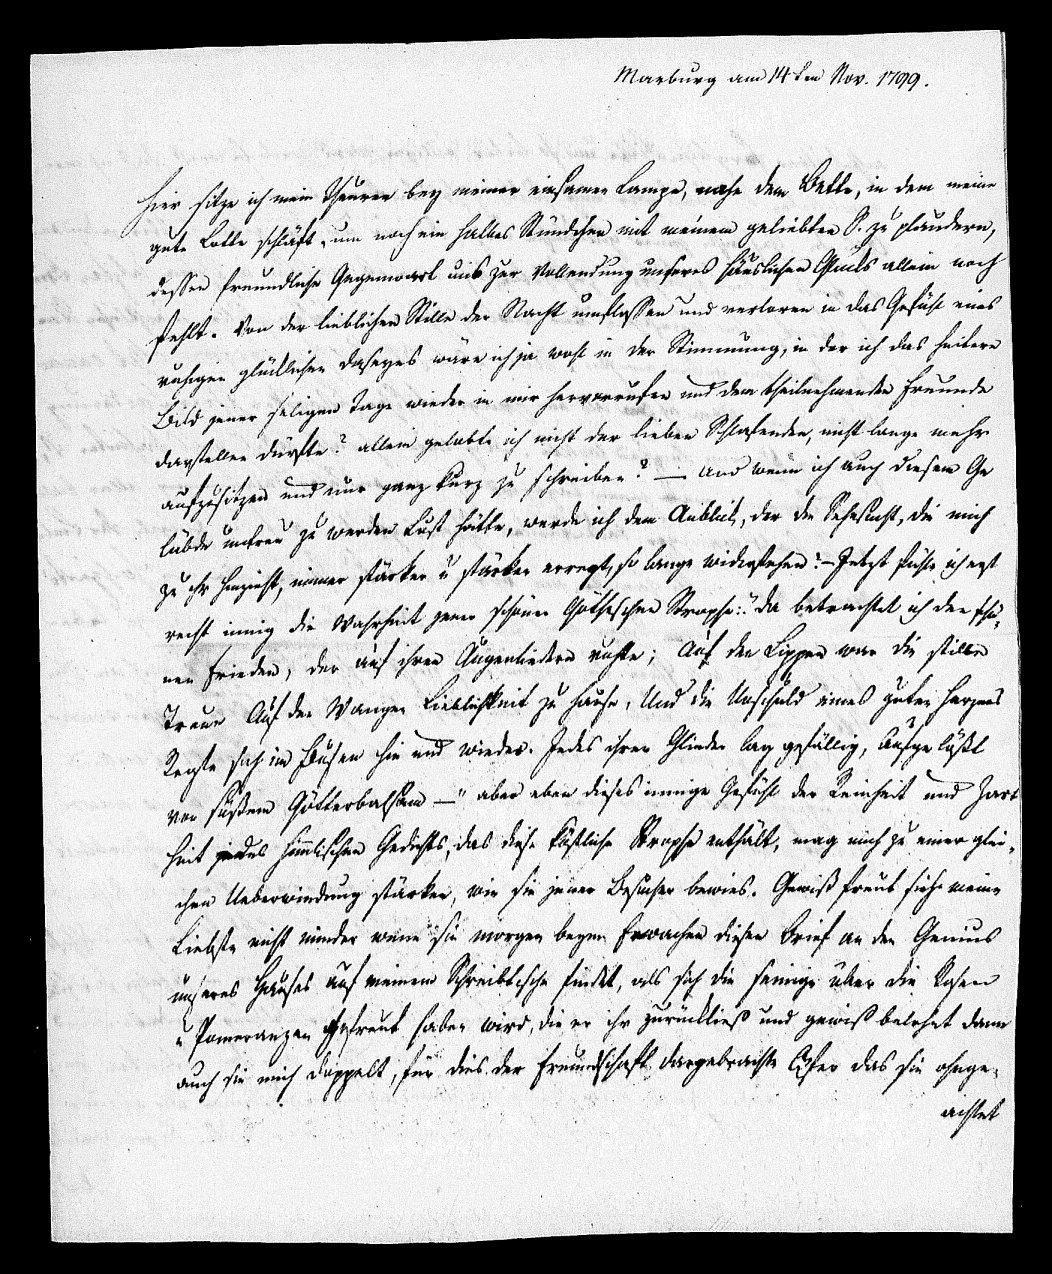 Marburg am 14ten Nov. 1799.
Hier sitze ich mein Theurer bey meiner einsamen Lampe, nahe dem Bette, in dem meine
gute Lotte schläft, um noch ein halbes Stündchen mit meinem geliebten S. zu plaudern,
dessen freundliche Gegenwart uns zur Vollendung unseres häuslichen Glücks allein noch
fehlt. Von der lieblichen Stille der Nacht umflossen und verloren in das Gefühl eines
ruhigen glücklichen Daseyns wäre ich ja wohl in der Stimmung, in der ich das heitere
Bild jener seligen Tage wieder in mir hervorrufen und dem theilnehmenden Freunde
darstellen dürfte? allein gelobte ich nicht der lieben Schlafenden, nicht lange mehr
aufzusitzen und nur ganz kurz zu schreiben? — Und wenn ich auch diesem Ge
lübde untreu zu werden Lust hätte, werde ich dem Anblick, der die Sehnsucht, die mich
zu ihr hinzieht, immer stärker u stärker erregt, so lange widerstehen? – Jetzt fühle ich erst
recht innig die Wahrheit jener schönen Götheschen Strophe: "Da betrachtet ich den schö-
nen Frieden, der auf ihren Augenliedern ruhte; Auf den Lippen war die stille
Treue Auf den Wangen Lieblichkeit zu Hause, Und die Unschuld eines guten Herzens
Regte sich im Busen hin und wieder. Jedes ihrer Glieder lag gefällig, Aufgelößt
von süßem Götterbalsam —" aber eben dieses innige Gefühl der Reinheit und Zart
heit jedes himmlischen Gedichts, das diese köstliche Strophe enthält, mag mich zu einer glei-
chen Ueberwindung stärken, wie sie jener Besucher bewies. Gewiß freut sich meine
Liebste nicht minder wenn sie morgen beym Erwachen diesen Brief an den Genius
unseres Hauses auf meinem Schreibtische findet, als sich die seinige über die Rosen
u Pomeranzen gefreut haben wird, die er ihr zurückließ und gewiß belohnt dann
auch sie mich doppelt, für dies der Freundschaft dargebrachte Opfer das sie ohnge-
achtet